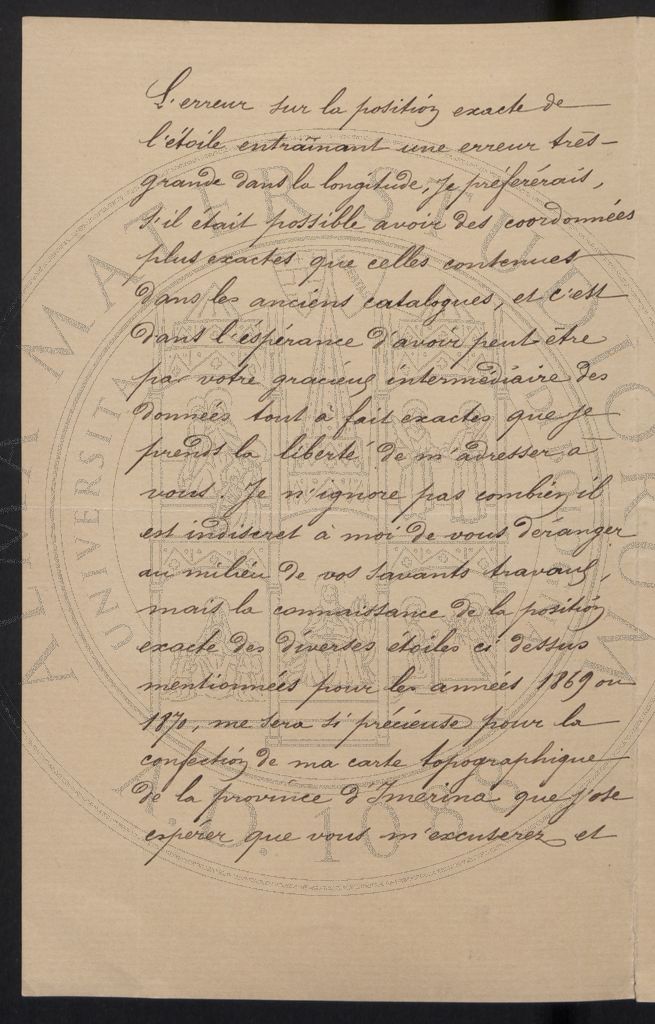 L'erreur sur la position exacte de
l'étoile entraînant une erreur très-
grande dans la longitude, je préfèrérais,
s'il était possible avoir des coordonnées
plus exactes que celles contenues
dans les anciens catalogues, et c'est
dans l'éspérance d'avoir peut-être
par votre gracieux intermédiaire des
données tout à fait exactes que je
prends la liberté de m'adresser à
vous. Je n'ignore pas combien il
est indiscret à moi de vous déranger
au milieu de vos savants travaux,
mais la connaissance de la position
exacte des diverses étoiles ci dessus
mentionnées pour les années 1869 ou
1870, me sera si précieuse pour la
confection de ma carte topographique
de la province d'Imerina que j'ose
espérer que vous m'excuserez et
ALMA MATER STUDIORUM
UNIVERSITA
A.D. 1088